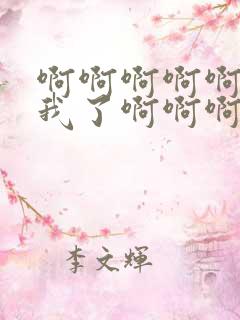 啊啊啊啊啊
我了啊啊啊
李文輝